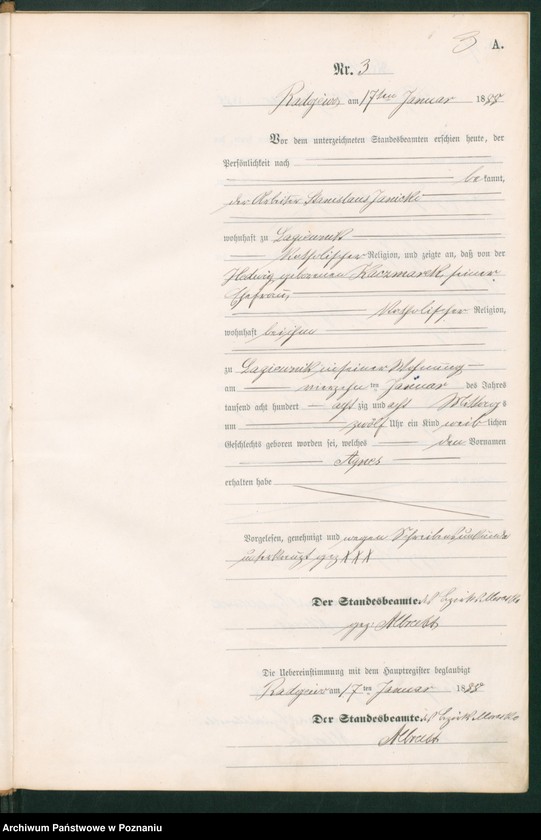 3 A.
Nr. 3
am 17ten Januar 1888
Vor dem unterzeichneten Standesbeamten erschien heute, der
Persönlichkeit nach
be kannt,
der Arbeiter Stanislaus Janicki
wohnhaft zu Lagiewnik
katholischer Religion, und zeigte an, daß von der
Hedwig geborenen Kaczmarek seiner
Ehefrau,
katholischer Religion,
wohnhaft bei ihm
zu Lagiewnik in seiner Wohnung
am vierzehn ten Januar des Jahres
tausend acht hundert acht zig und acht Mittags
um zwölf Uhr ein Kind weib lichen
Geschlechts geboren worden sei, welches den Vornamen
Agnes
erhalten habe
Vorgelesen, genehmigt und wegen Schreibensunkunde
unterkreuzt gez XXX
Der Standesbeamte.
gez: Albrecht
Die Uebereinstimmung mit dem Hauptregister beglaubigt
am 17 ten Januar 1888
Der Standesbeamte.
Albrecht
Archiwum Państwowe w Poznaniu